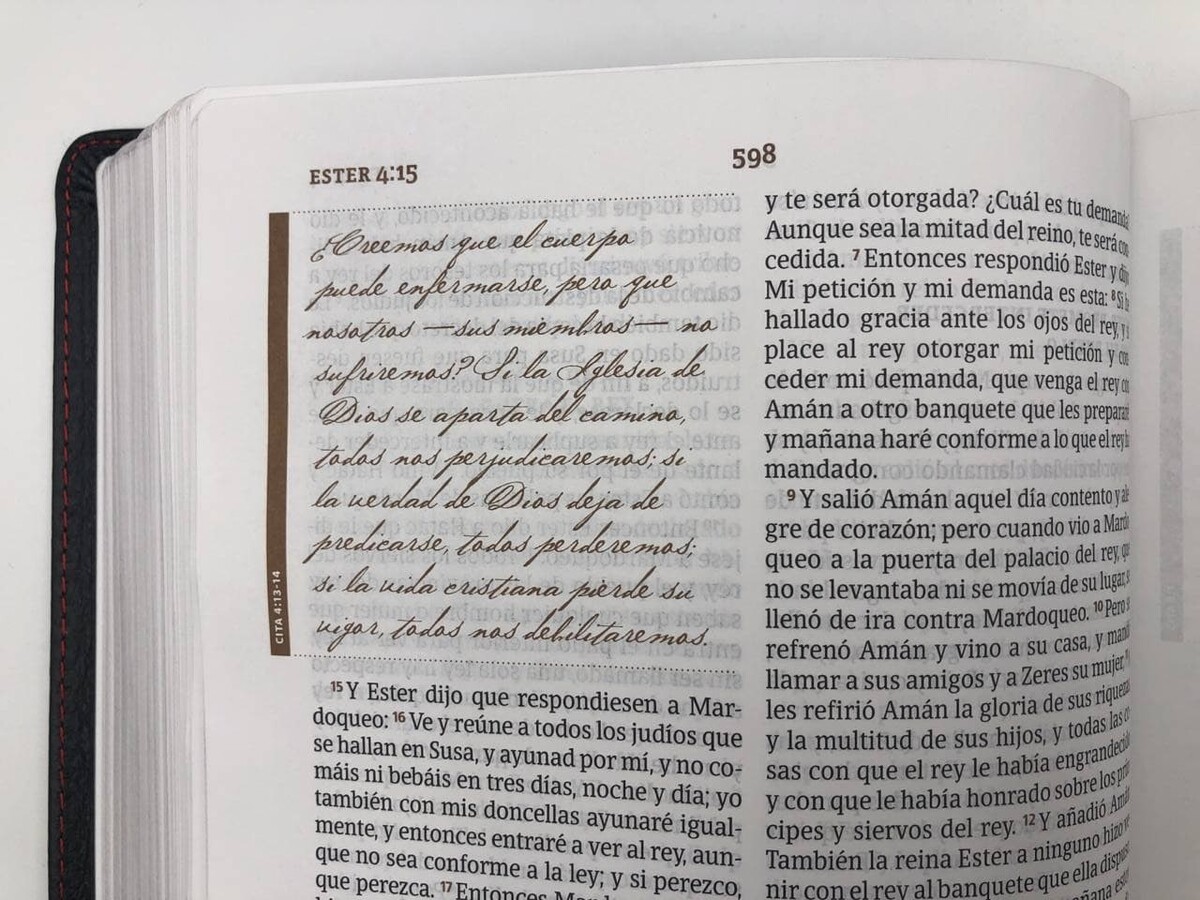 ESTER 4:15
598
¿Creemos que el cuerpo
puede enfermarse, pero que
nosotros —sus miembros— no
sufriremos? Si la Iglesia de
Dios se aparta del camino,
todos nos perjudicaremos; si
la verdad de Dios deja de
predicarse, todos perderemos;
si la vida cristiana pierde su
vigor, todos nos debilitaremos.
CITA 4:13-14
15 Y Ester dijo que respondiesen a Mar-
doqueo: 16 Ve y reúne a todos los judíos que
se hallan en Susa, y ayunad por mí, y no co-
máis ni bebáis en tres días, noche y día; yo
también con mis doncellas ayunaré igual-
mente, y entonces entraré a ver al rey, aun-
que no sea conforme a la ley; y si perezco,
que perezca. 17 Entonces
y te será otorgada? ¿Cuál es tu demanda
Aunque sea la mitad del reino, te será con
cedida. 7 Entonces respondió Ester y dijo
Mi petición y mi demanda es esta: 8 Si he
hallado gracia ante los ojos del rey, y
place al rey otorgar mi petición y con
ceder mi demanda, que venga el rey con
Amán a otro banquete que les prepararé
y mañana haré conforme a lo que el rey
mandado.
9 Y salió Amán aquel día contento y ale
gre de corazón; pero cuando vio a Mardo
queo a la puerta del palacio del rey, que
no se levantaba ni se movía de su lugar,
llenó de ira contra Mardoqueo. 10 Pero
refrenó Amán y vino a su casa, y mandó
llamar a sus amigos y a Zeres su mujer,
les refirió Amán la gloria de sus riquezas
y la multitud de sus hijos, y todas las co
sas con que el rey le había engrandecido
y con que le había honrado sobre los prín
cipes y siervos del rey. 12 Y añadió Amán
También la reina Ester a ninguno hizo
nir con el rey al banquete que ella dispuso